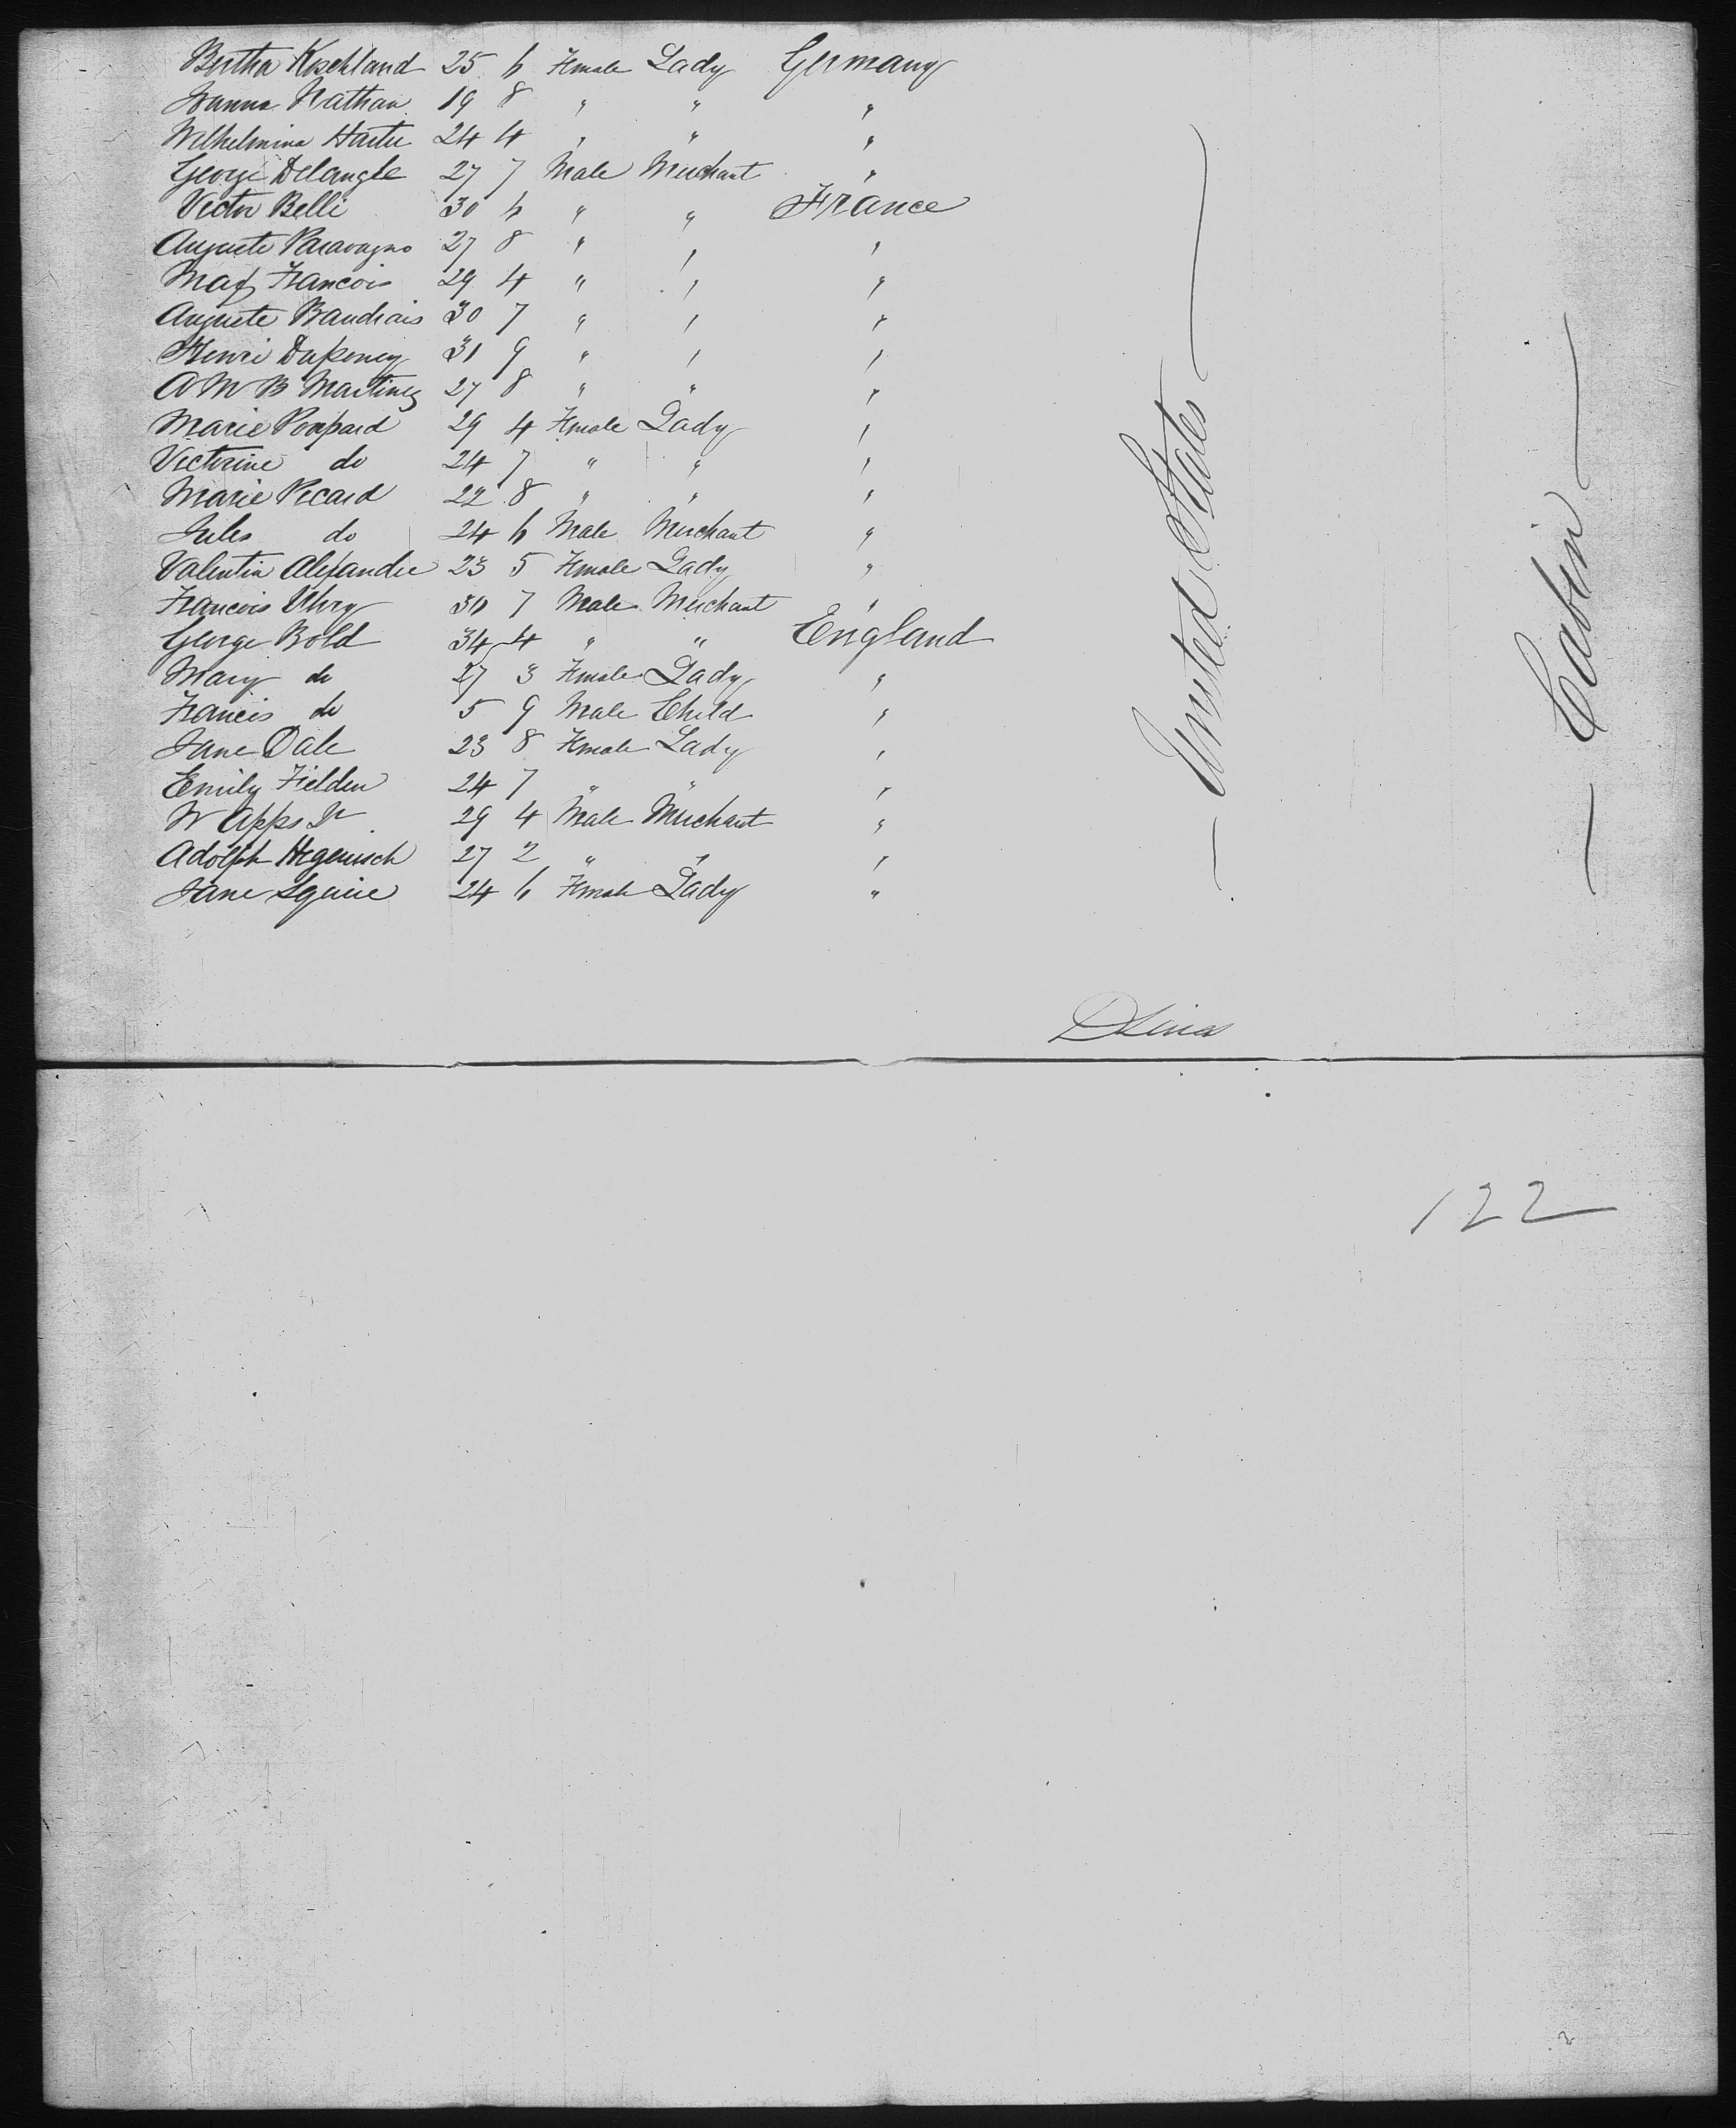 Bertha Koschland 25 6 Female Lady Germany
Hanna Nathan 19 8 " " "
Wilhelmina Harter 24 4 " " "
George Delangle 27 7 Male Merchant "
Victor Belli 30 6 " " France
Auguste Paravagno 27 8 " " "
Max Francois 29 4 " " "
Auguste Baudrais 30 7 " " "
Henri 31 9 " " "
A M B Martinez 27 8 " " "
Marie 29 4 Female Lady "
Victorine do 24 7 " " "
Marie Picard 22 8 " " "
Jules do 24 6 Male Merchant "
Valentin Alexandre 23 5 Female Lady "
Francois Uhry 30 7 Male Merchant "
George Bold 34 4 " " England
Mary do 27 3 Female Lady "
Francis do 5 9 Male Child "
Jane Dale 23 8 Female Lady "
Emily Fielden 24 7 " " "
W Apps Jr 29 4 Male Merchant "
Adolph Hegewisch 27 2 " " "
Jane Squire 24 6 Female Lady "
— United States —
— Cabin —
122